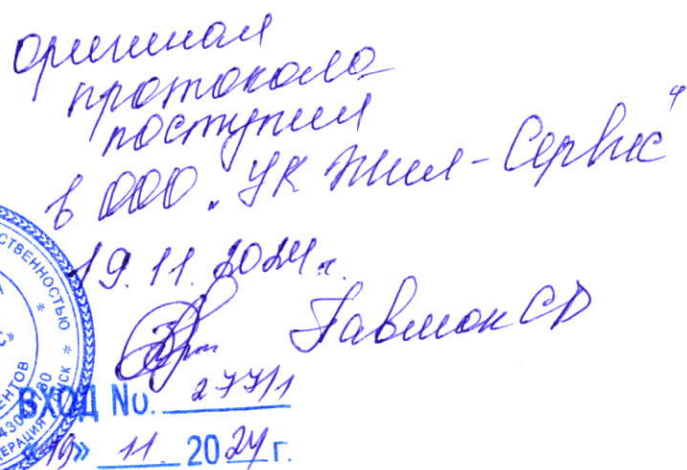 оригинал
протокола
поступил
в ООО "УК Жил-Сервис"
19.11.2024г.
Павлюк СВ
ВХОД No. 277/1
«19» 11 2024 г.
СТВЕННОСТЬЮ